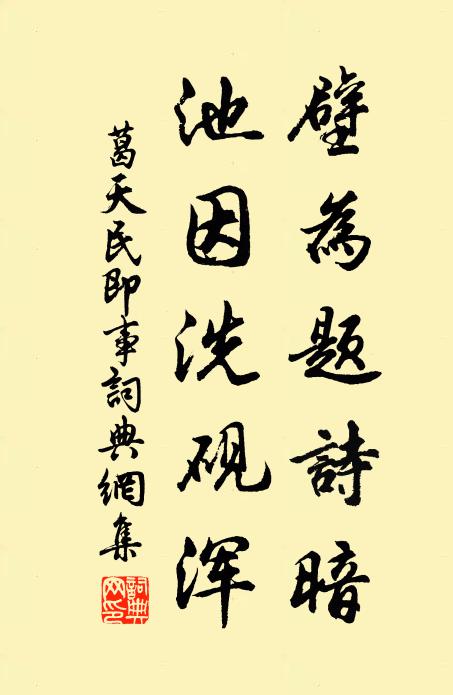 壁為題詩暗
池因洗硯浑
葛天民即事詞典網集
詞典網印